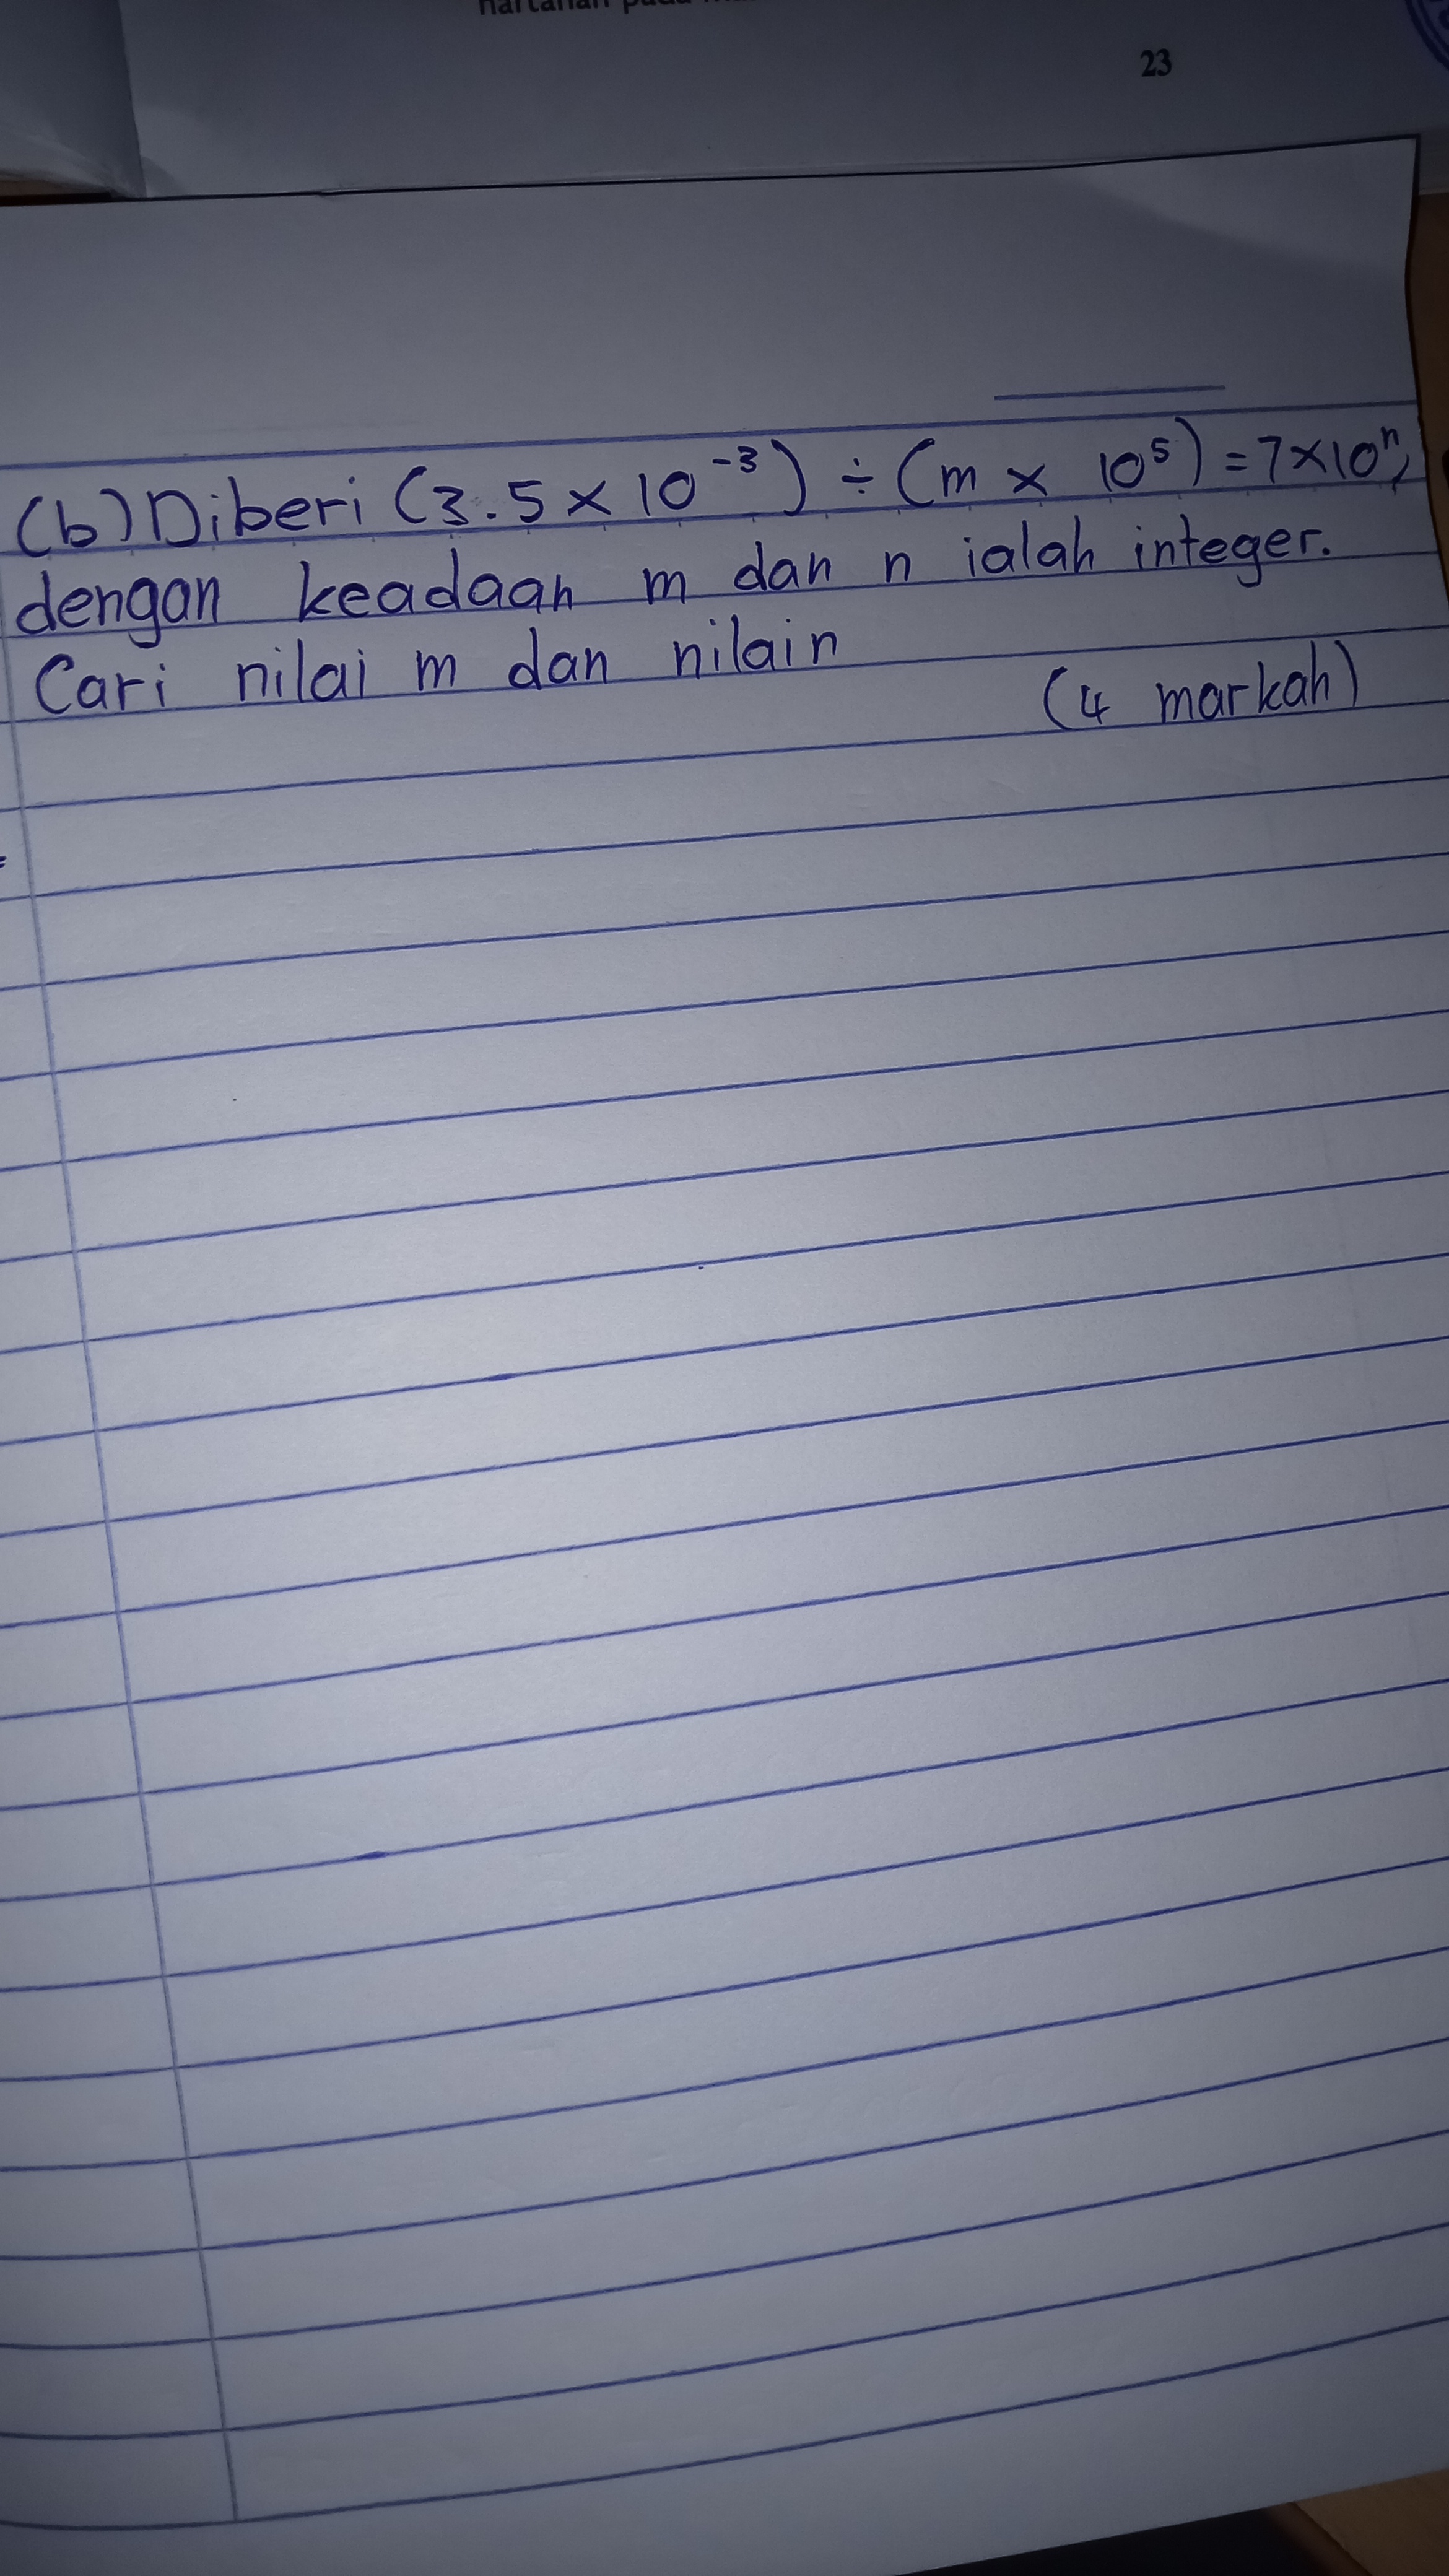 23
(b) Diberi (3.5 × 10⁻³) ÷ (m × 10⁵) = 7 × 10ⁿ,
dengan keadaan m dan n ialah integer.
Cari nilai m dan nilai n
(4 markah)